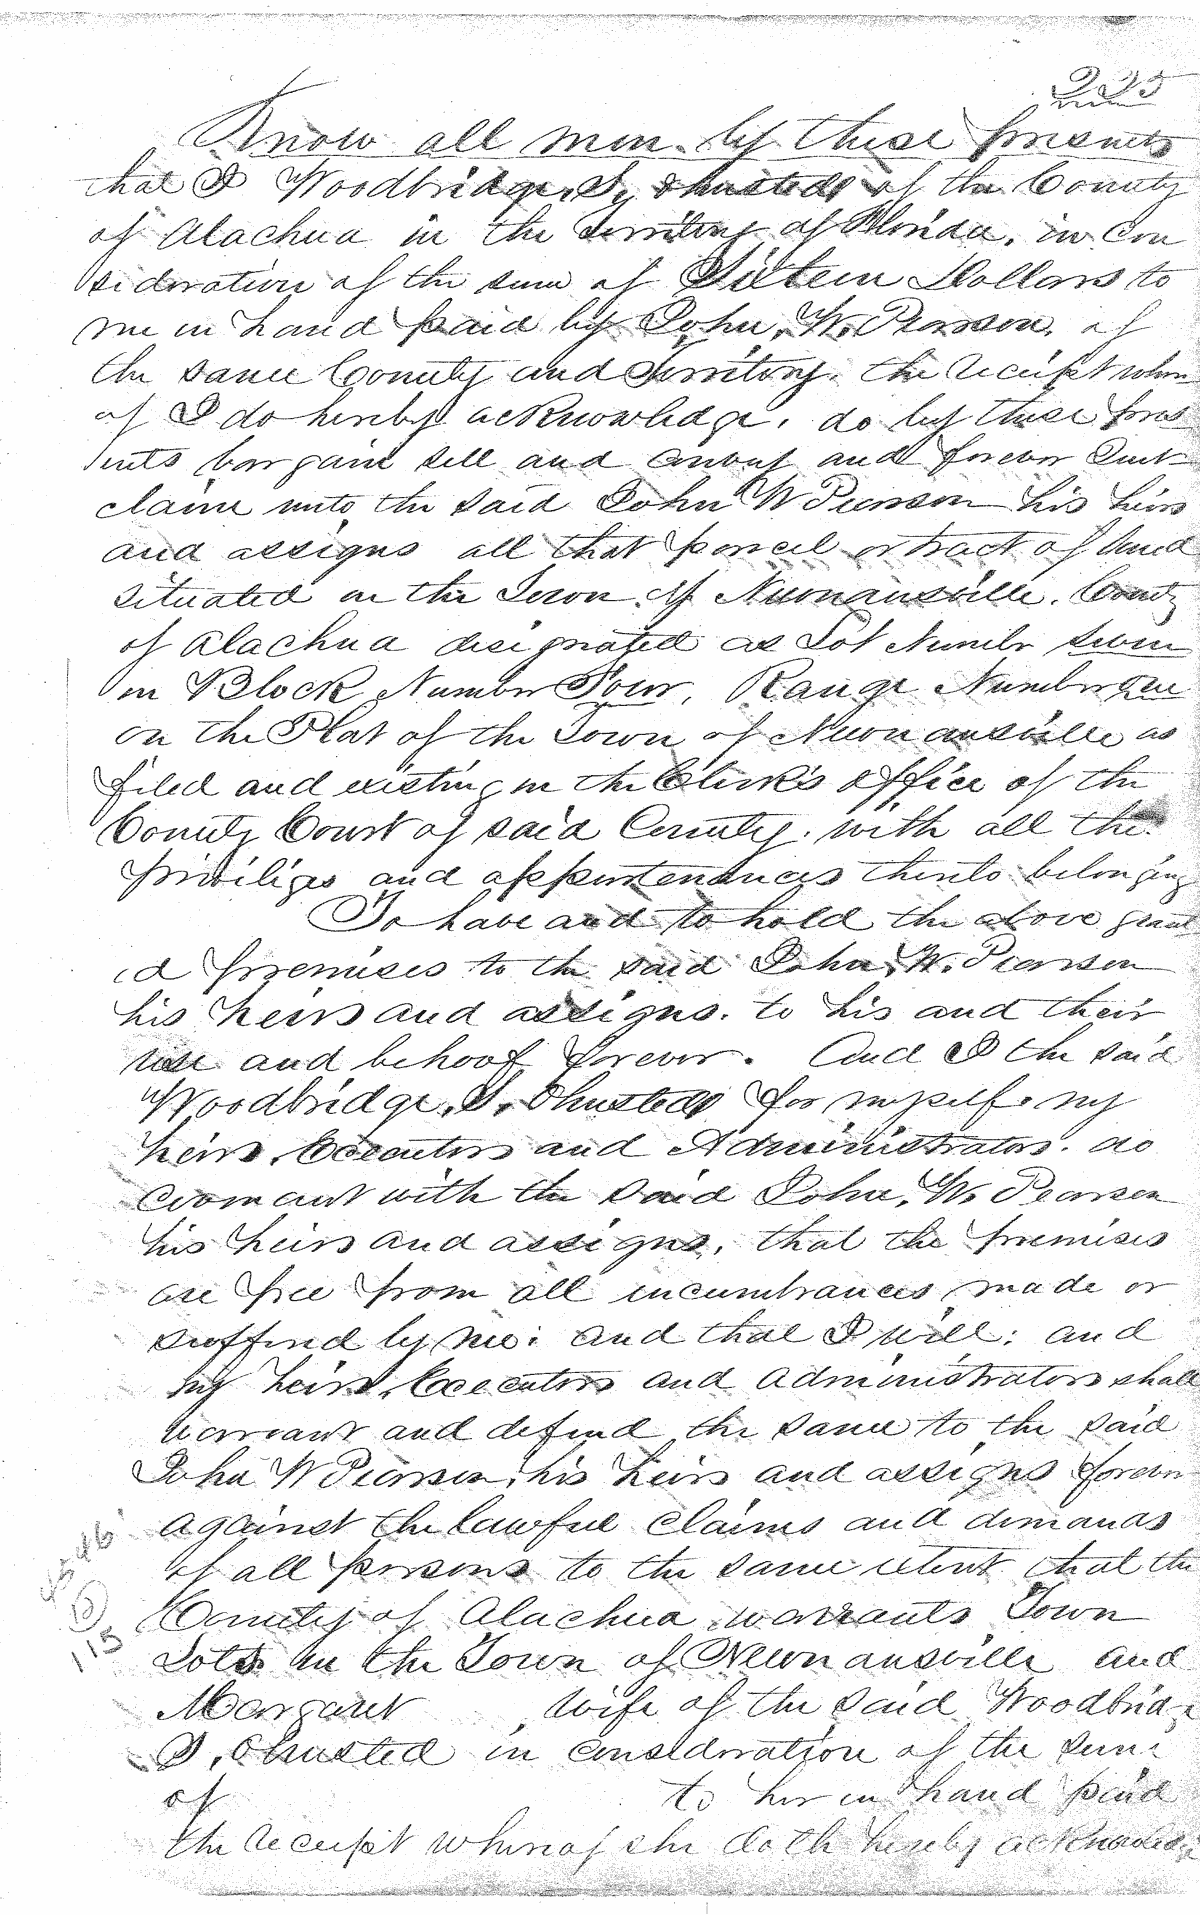 225
Know all men by these presents
that I Woodbridge S. Olmsted of the County
of Alachua in the Territory of Florida, in con
sideration of the sum of Sixteen Dollars to
me in hand paid by John, W. Pearson, of
the same County and Territory, the receipt wher
of I do hereby acknowledge, do by these pres
ents bargain sell and convey and forever Quit
claim unto the said John W Pearson his heirs
and assigns all that parcel or tract of land
situated in the Town of Newnansville, County
of Alachua designated as Lot Number seven
in Block Number Four, Range Number
on the Plat of the Town of Newnansville as
filed and existing in the Clerk's office of the
County Court of said County. with all the
priviliges and appertenances thereto belonging
To have and to hold the above grant
ed premises to the said John, W. Pearson
his heirs and assigns. to his and their
use and behoof forever. And I the said
Woodbridge, S. Olmsted for myself. my
heirs, Executors and Administrators. do
covenant with the said John, W. Pearson
his heirs and assigns, that the premises
are free from all incumbrances, made or
suffered by me: and that I will; and
my heirs, Executors and administrators shall
warrant and defend the same to the said
John W Pearson, his heirs and assigns forever
against the lawful claims and demands
of all persons to the same extent that the
County of Alachua warrants Town
Lots in the Town of Newnansville and
Margaret , wife of the said Woodbridge
S, Olmsted in consideration of the sum
of to her in hand paid
the receipt whereof she doth hereby acknowledge
115